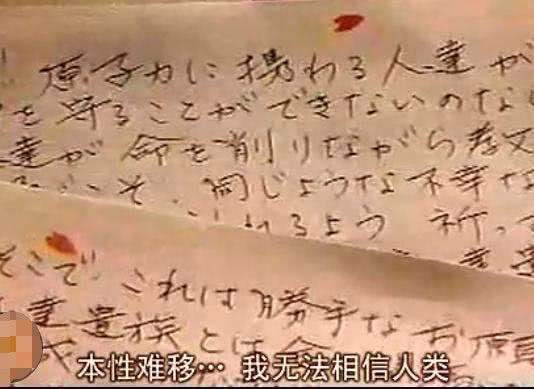 原子力に携わる人達が
を守ることができないのなら
達が 命を削りながら
同じような不幸な
れるよう 祈って
そこで、これは勝手なお願
達遺族とは
本性难移… 我无法相信人类